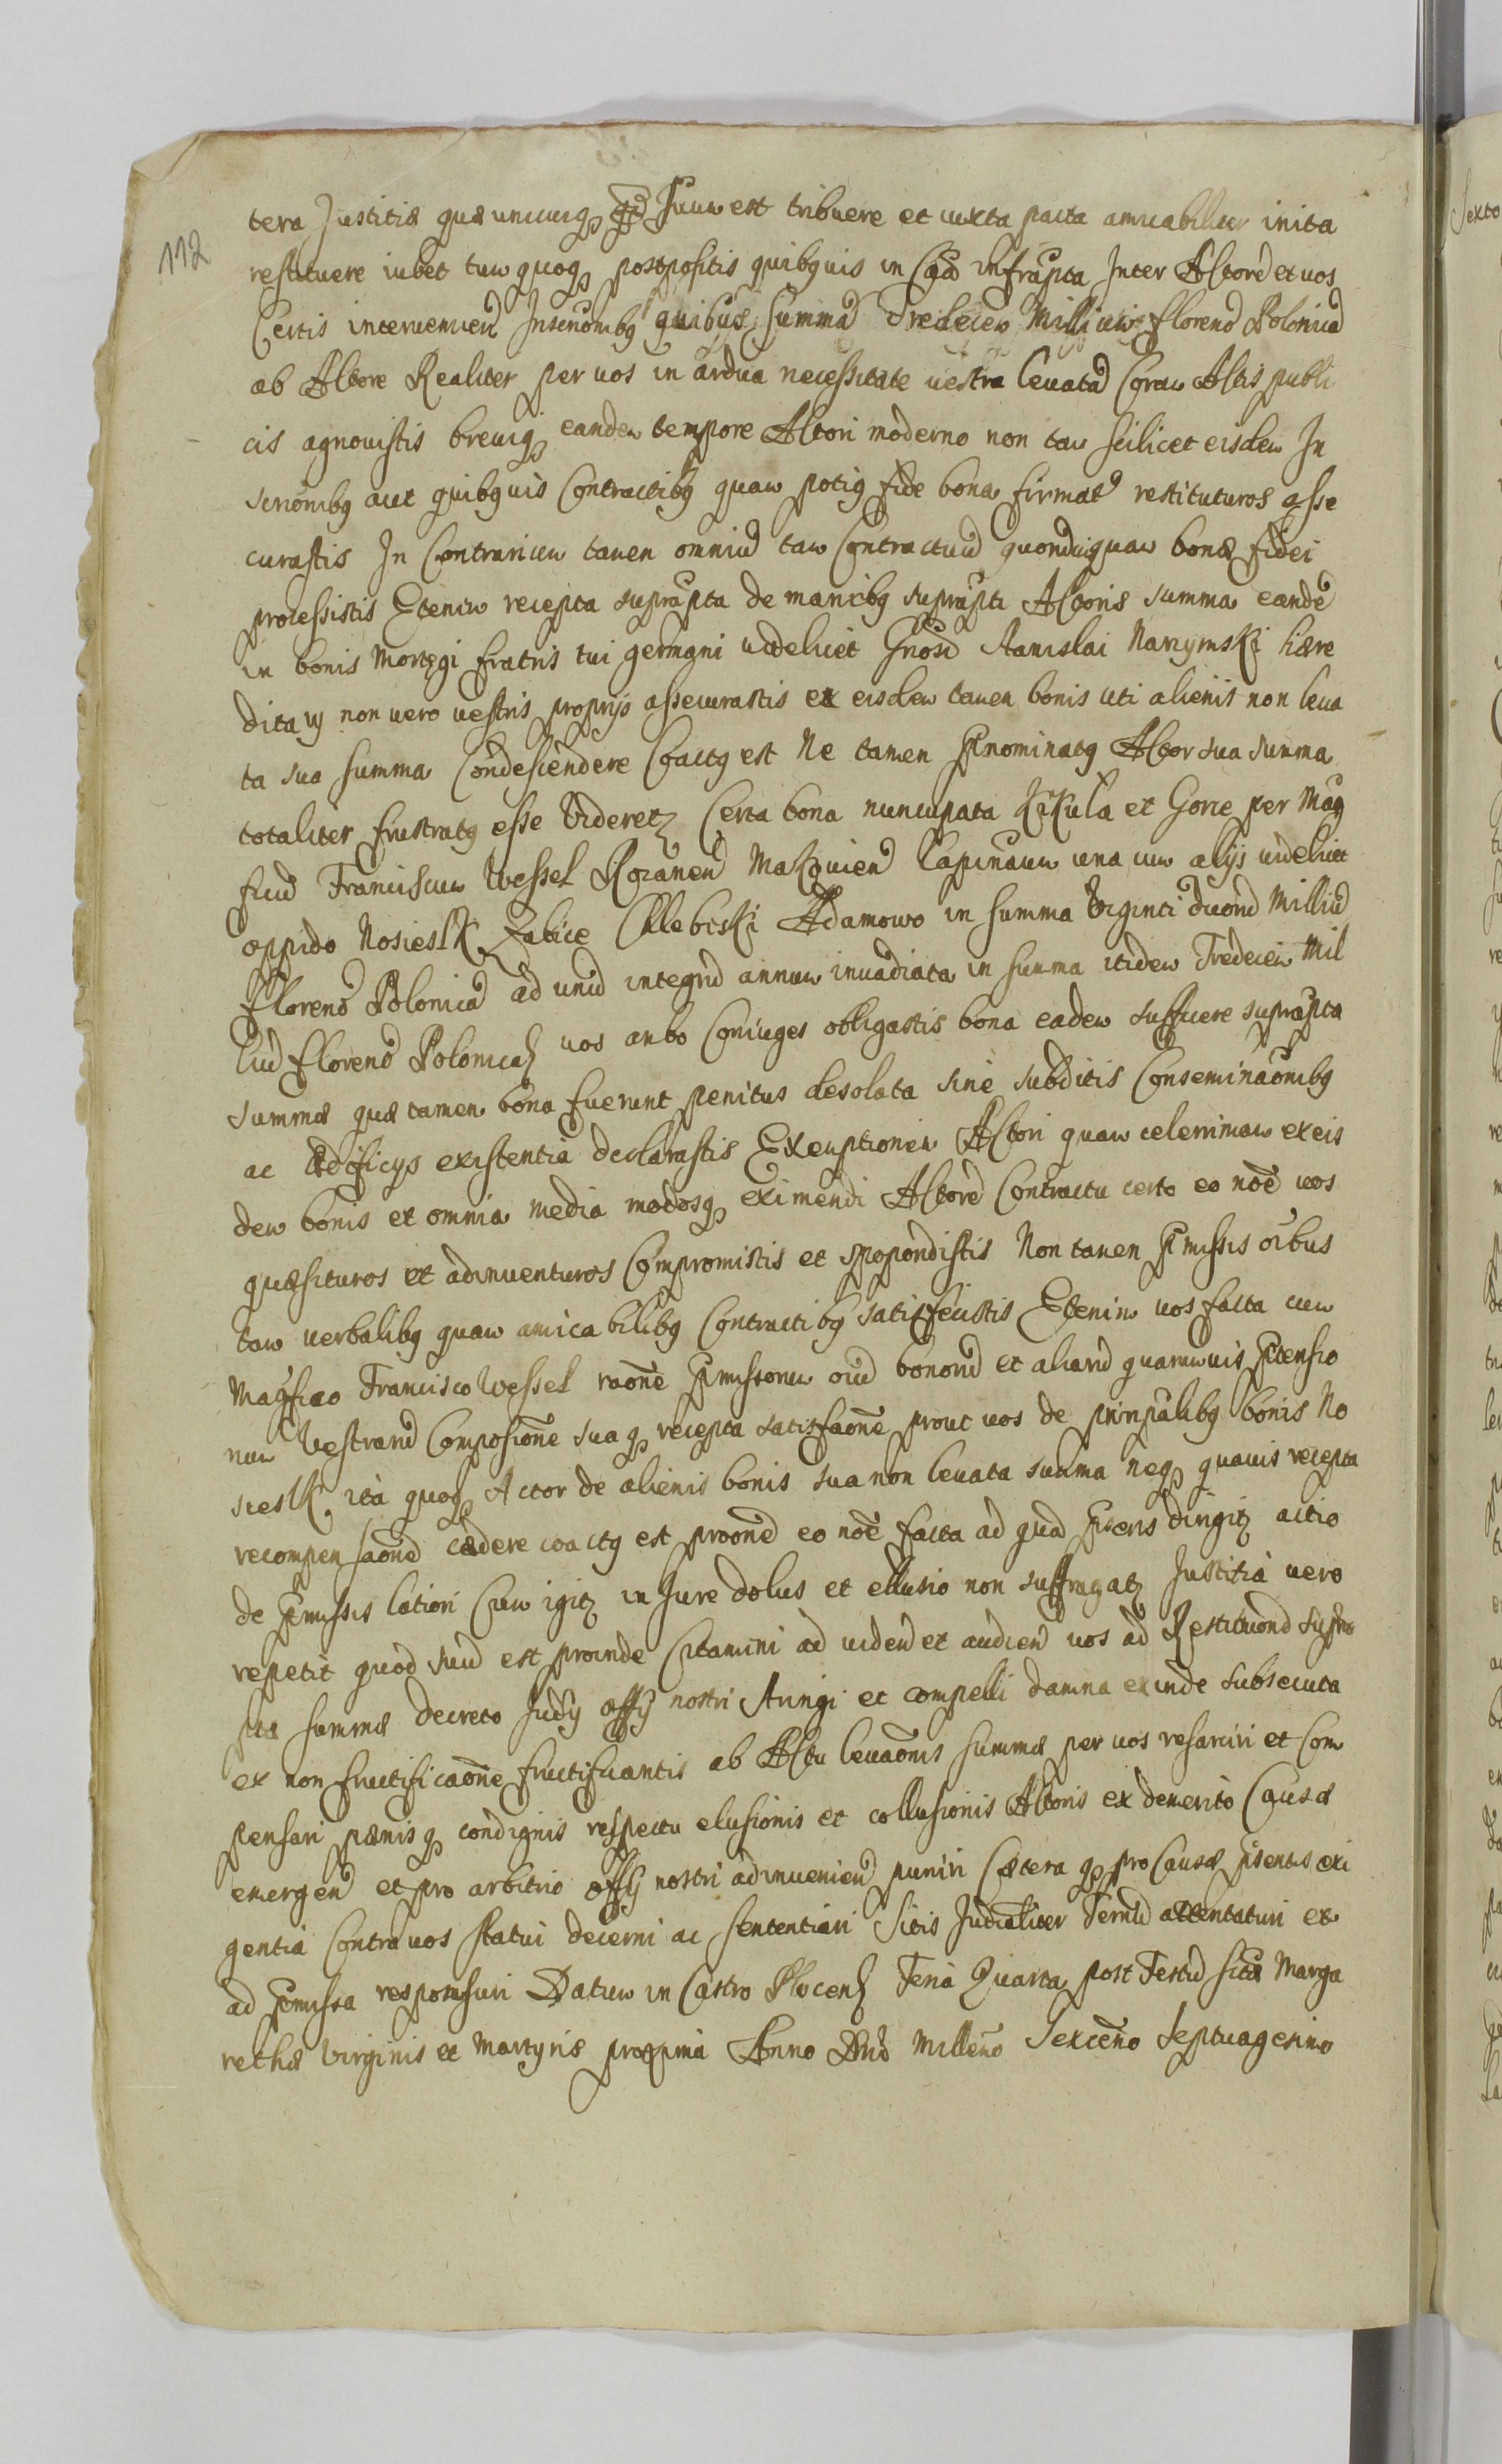 112
tera Justitiæ quæ unicuiq₃ qd Suum est tribuere et iuxta pacta amicabiliter inita
restituere iubet tum quoq₃ postpositis quibusuis in Ca infrapta Inter Actore et uos
Certis intervenien Inscrōnibꝰ quibus Summa Tredecem Millium Floreno Polonica
ab Actore Realiter per uos in ardua necessitate uestra levata Coram Actis publi
cis agnouistis breviq₃ eandem tempore Actori moderno non tam scilicet eisdem In
scrōnibꝰ aut quibꝰuis Contractibꝰ quam potiꝰ fide bona firmat restituturos asse
curastis In Contrarium tamen omniu tam Contractuu quam bonæ fidei
processistis Etenim recepta suprapta de manibꝰ suprapti Actoris summa eande
in bonis Mortegi fratris tui germani videlicet Gnosi Stanislai Narzymski hære
ditarÿ non uero uestris proprÿs assecurastis ex eisdem tamen bonis uti alienis non leua
ta sua summa Condescendere Coactꝰ est Ne tamen Pnominatꝰ Actor sua summa
totaliter frustratꝰ esse Videret₃ Certa bona nuncupata Kikuła et Gorie per Mag
ficu Franciscum Wessel Rozanen Makouien Capinaum una cum alÿs videlicet
oppido Nosielsk Zabice Chlebiski Adamowo in summa Viginti duoru Milliu
Floreno Polonica ad unu integru annum inuadiata in summa itidem Tredecim Mil
liu Floreno Polonical uos ambo Coniuges obligastis bona eadem suffficere suprapta
summæ quæ tamen bona fuerunt penitus desolata sine subditis Conseminaōnibꝰ
ac Ædificÿs existentia declarastis Exemptionem Actori quam celerrimam ex eis
dem bonis et omnia media modosq₃ eximendi Actore Contractu certo eo noē uos
quæsituros et adinuenturos Compromistis et spopondistis Non tamen Pmissis oībus
tam uerbalibꝰ quam amicabilibꝰ Contractibꝰ satisfecistis Etenim uos facta cum
Magfico Francisco Wessel raonē Pmissorum oiu bonoru et aliaru quarumuis Ptensio
num Vestraru Composionē suaq₃ recepta satisfaonē prout uos de prinpalibꝰ bonis No
sielsk ita quoq₃ Actor de alienis bonis sua non leuata summa neq₃ quauis recepta
recompensaone cædere coactꝰ est proone eo noē facta ad qua Psens dirigit₃ actio
de Pmissis latiori Cum igit₃ in Jure dolus et ellusio non suffragat₃ Justitia uero
repetit quod suu est proinde Citamini ad uiden et audien uos ad Restituone supra
ptæ summæ decreto Judÿ offÿ nostri stringi et compelli damna exinde subsecuta
ex non fructificaōne fructificantis ab Actu levaōnis summæ per uos resarciri et Com
pensari pænisq₃ condignis respectu elusionis et collusionis Actoris ex demerito Causæ
emergen et pro arbitrio offÿ nostri adinuenien puniri Cætera q₃ pro Causæ Psentis exi
gentia Contra uos statui decerni ac sententiari Sitis Judicialiter Termi attentaturi et
ad Pmissa responsuri Datum in Castro Plocen Feria Quarta post Festu Sctæ Marga
rethæ Virginis et Martyris proxima Anno Dni Millemo Sexcemo Septuagesimo